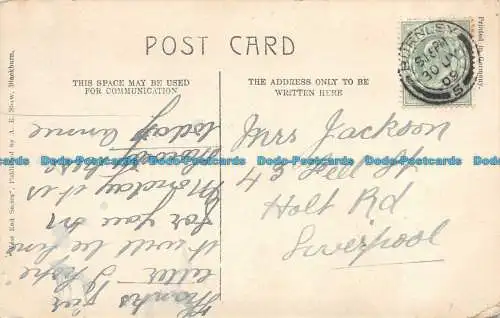 POST CARD
THIS SPACE MAY BE USED
FOR COMMUNICATION
THE ADDRESS ONLY TO BE
WRITTEN HERE
BURNLEY
5.15 PM
30 JU
09
S
Printed in Germany.
Published by A. E. Shaw, Blackburn.
Mrs Jackson
43 Peel St
Holt Rd
Liverpool
Thanks for
letter I hope
it will be fine
for you on
Monday it is
today Annie
Dodo-Postcards Dodo-Postcards Dodo-Postcards Dodo-Postcards Dodo-Postcards Dodo-Postcards